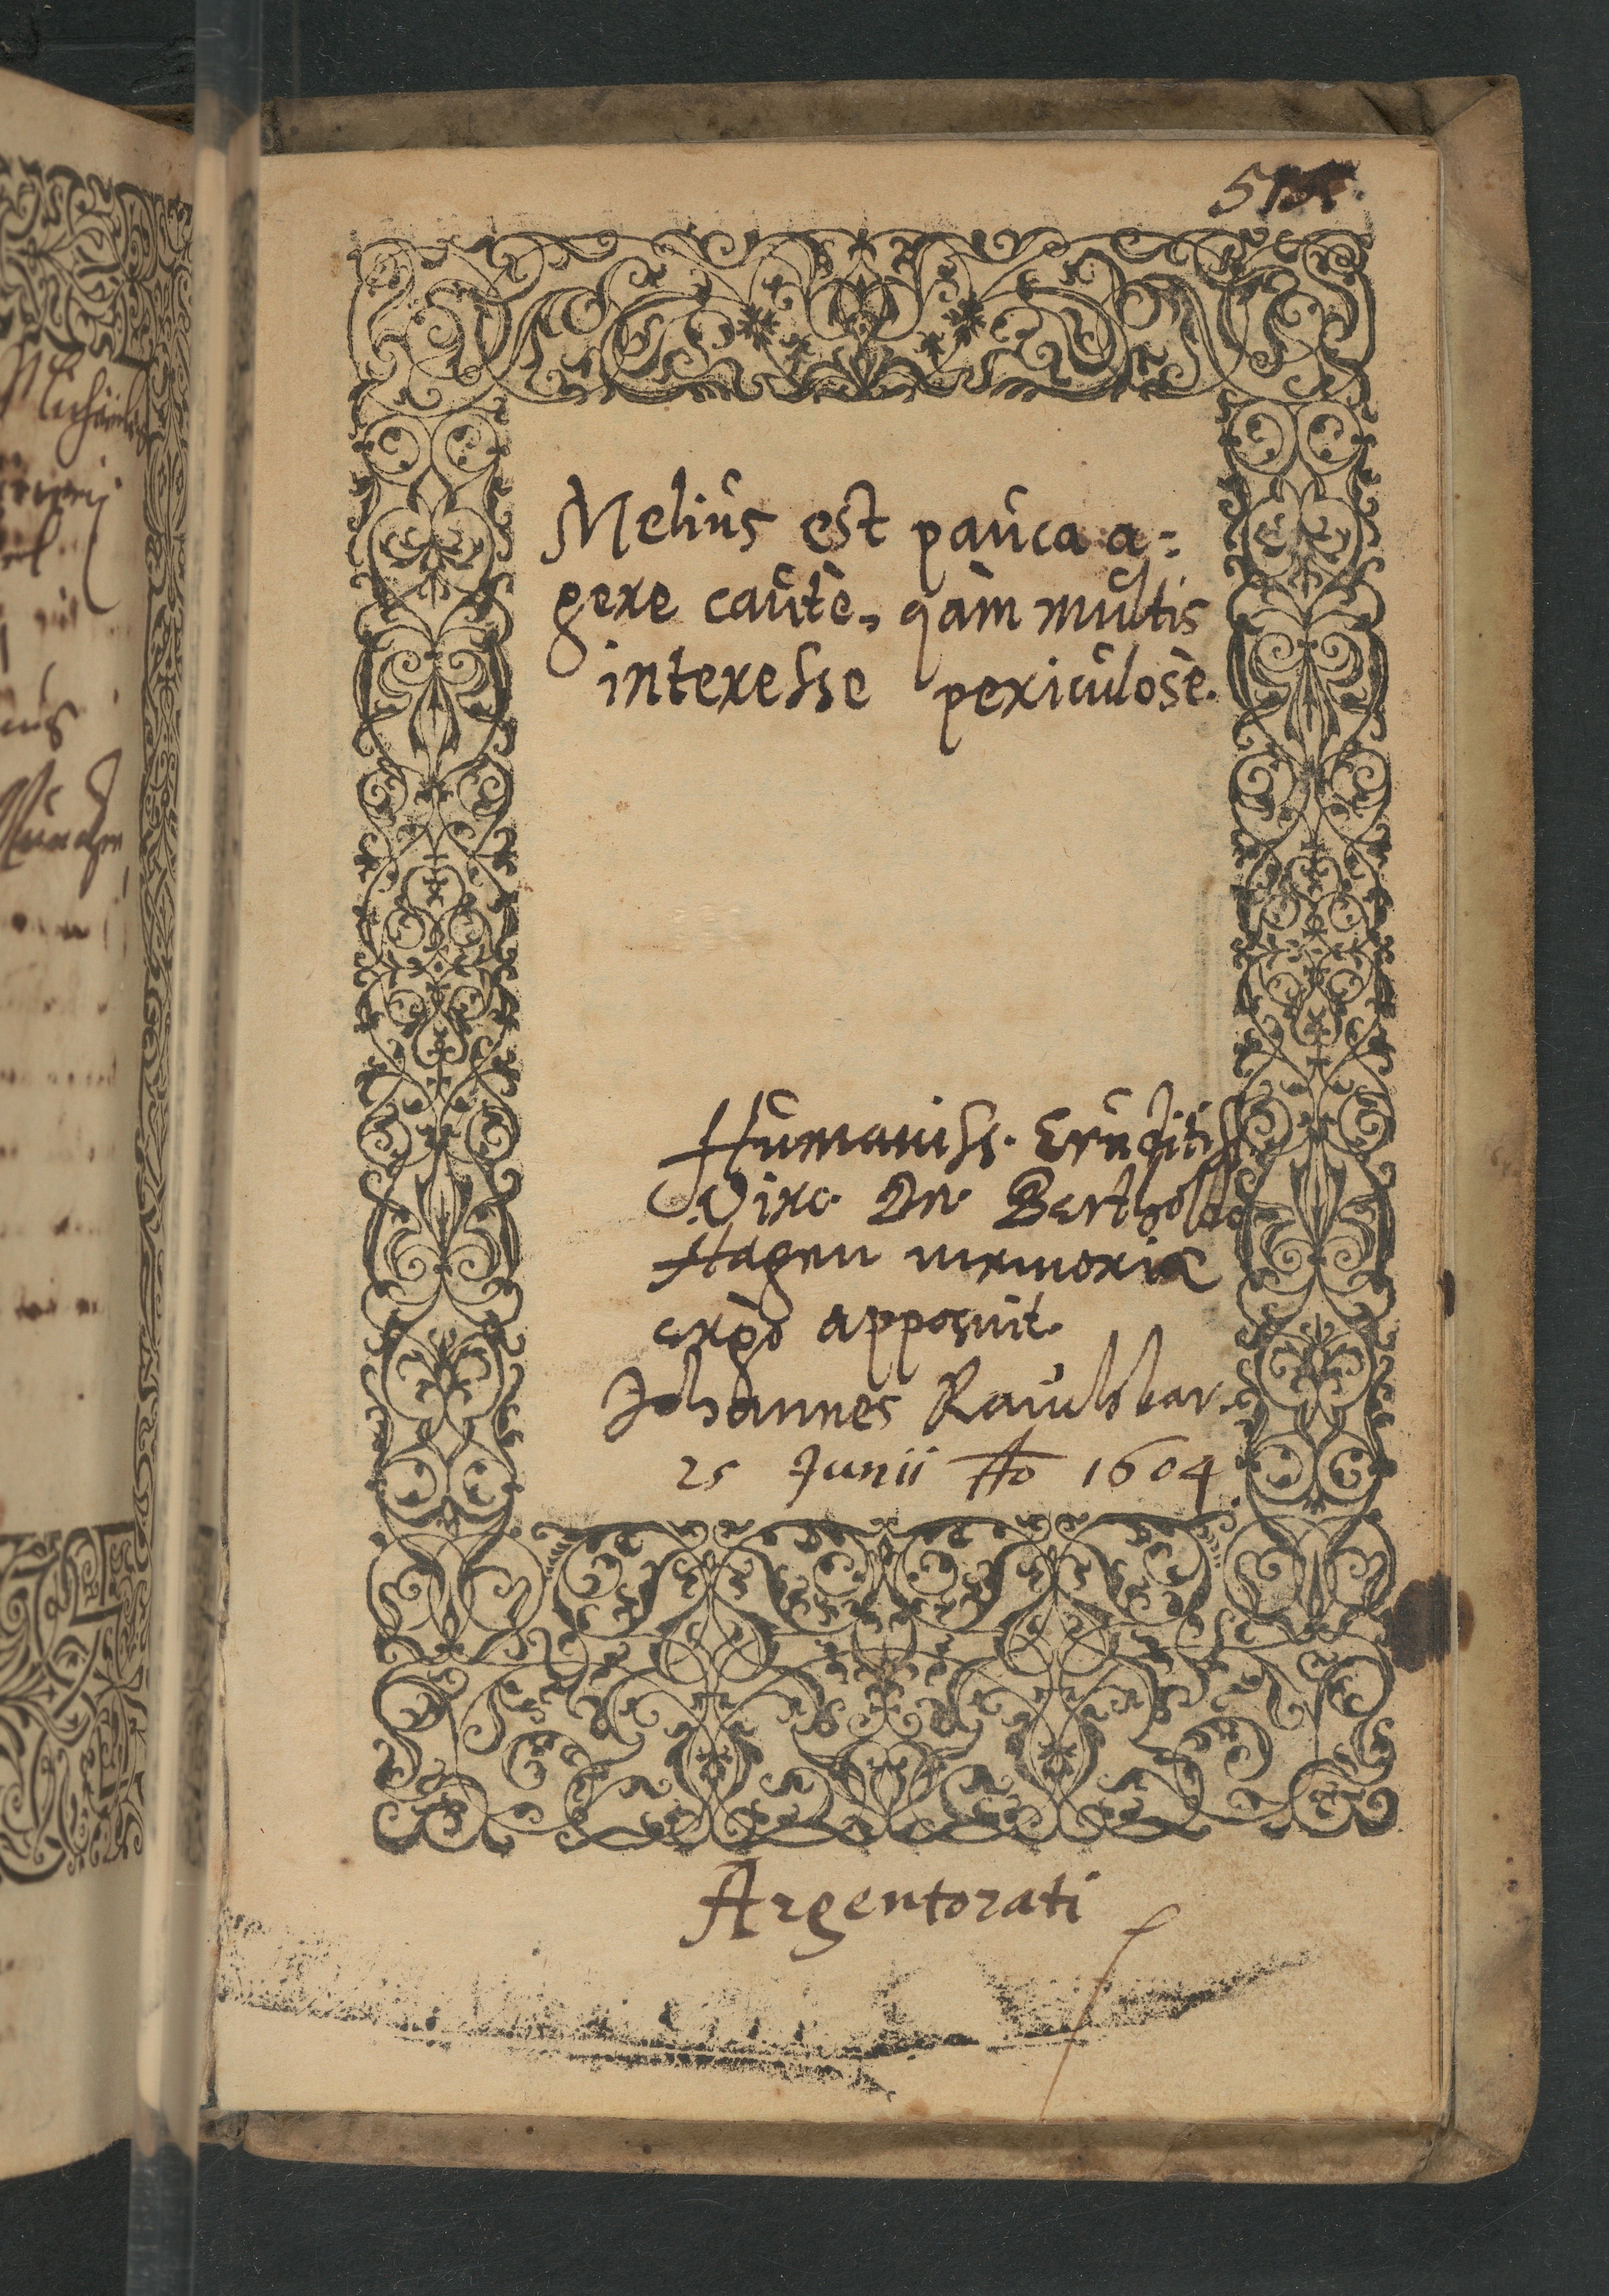 Meliús est paúca a=
gere caútè, qàm múltis
interesse periculosè.
Húmaniss. Erúditiss
Viro Dn. Bertholdo
Hagen memoriæ
ergò apposuit.
Johannes
25 Junii Ao 1604
Argentorati